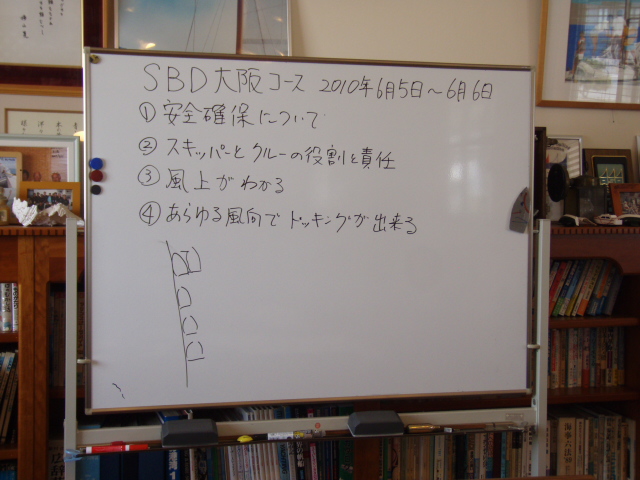 SBD大阪コース 2010年6月5日～6月6日
① 安全確保について
② スキッパーとクルーの役割と責任
③ 風上がわかる
④ あらゆる風向でドッキングが出来る